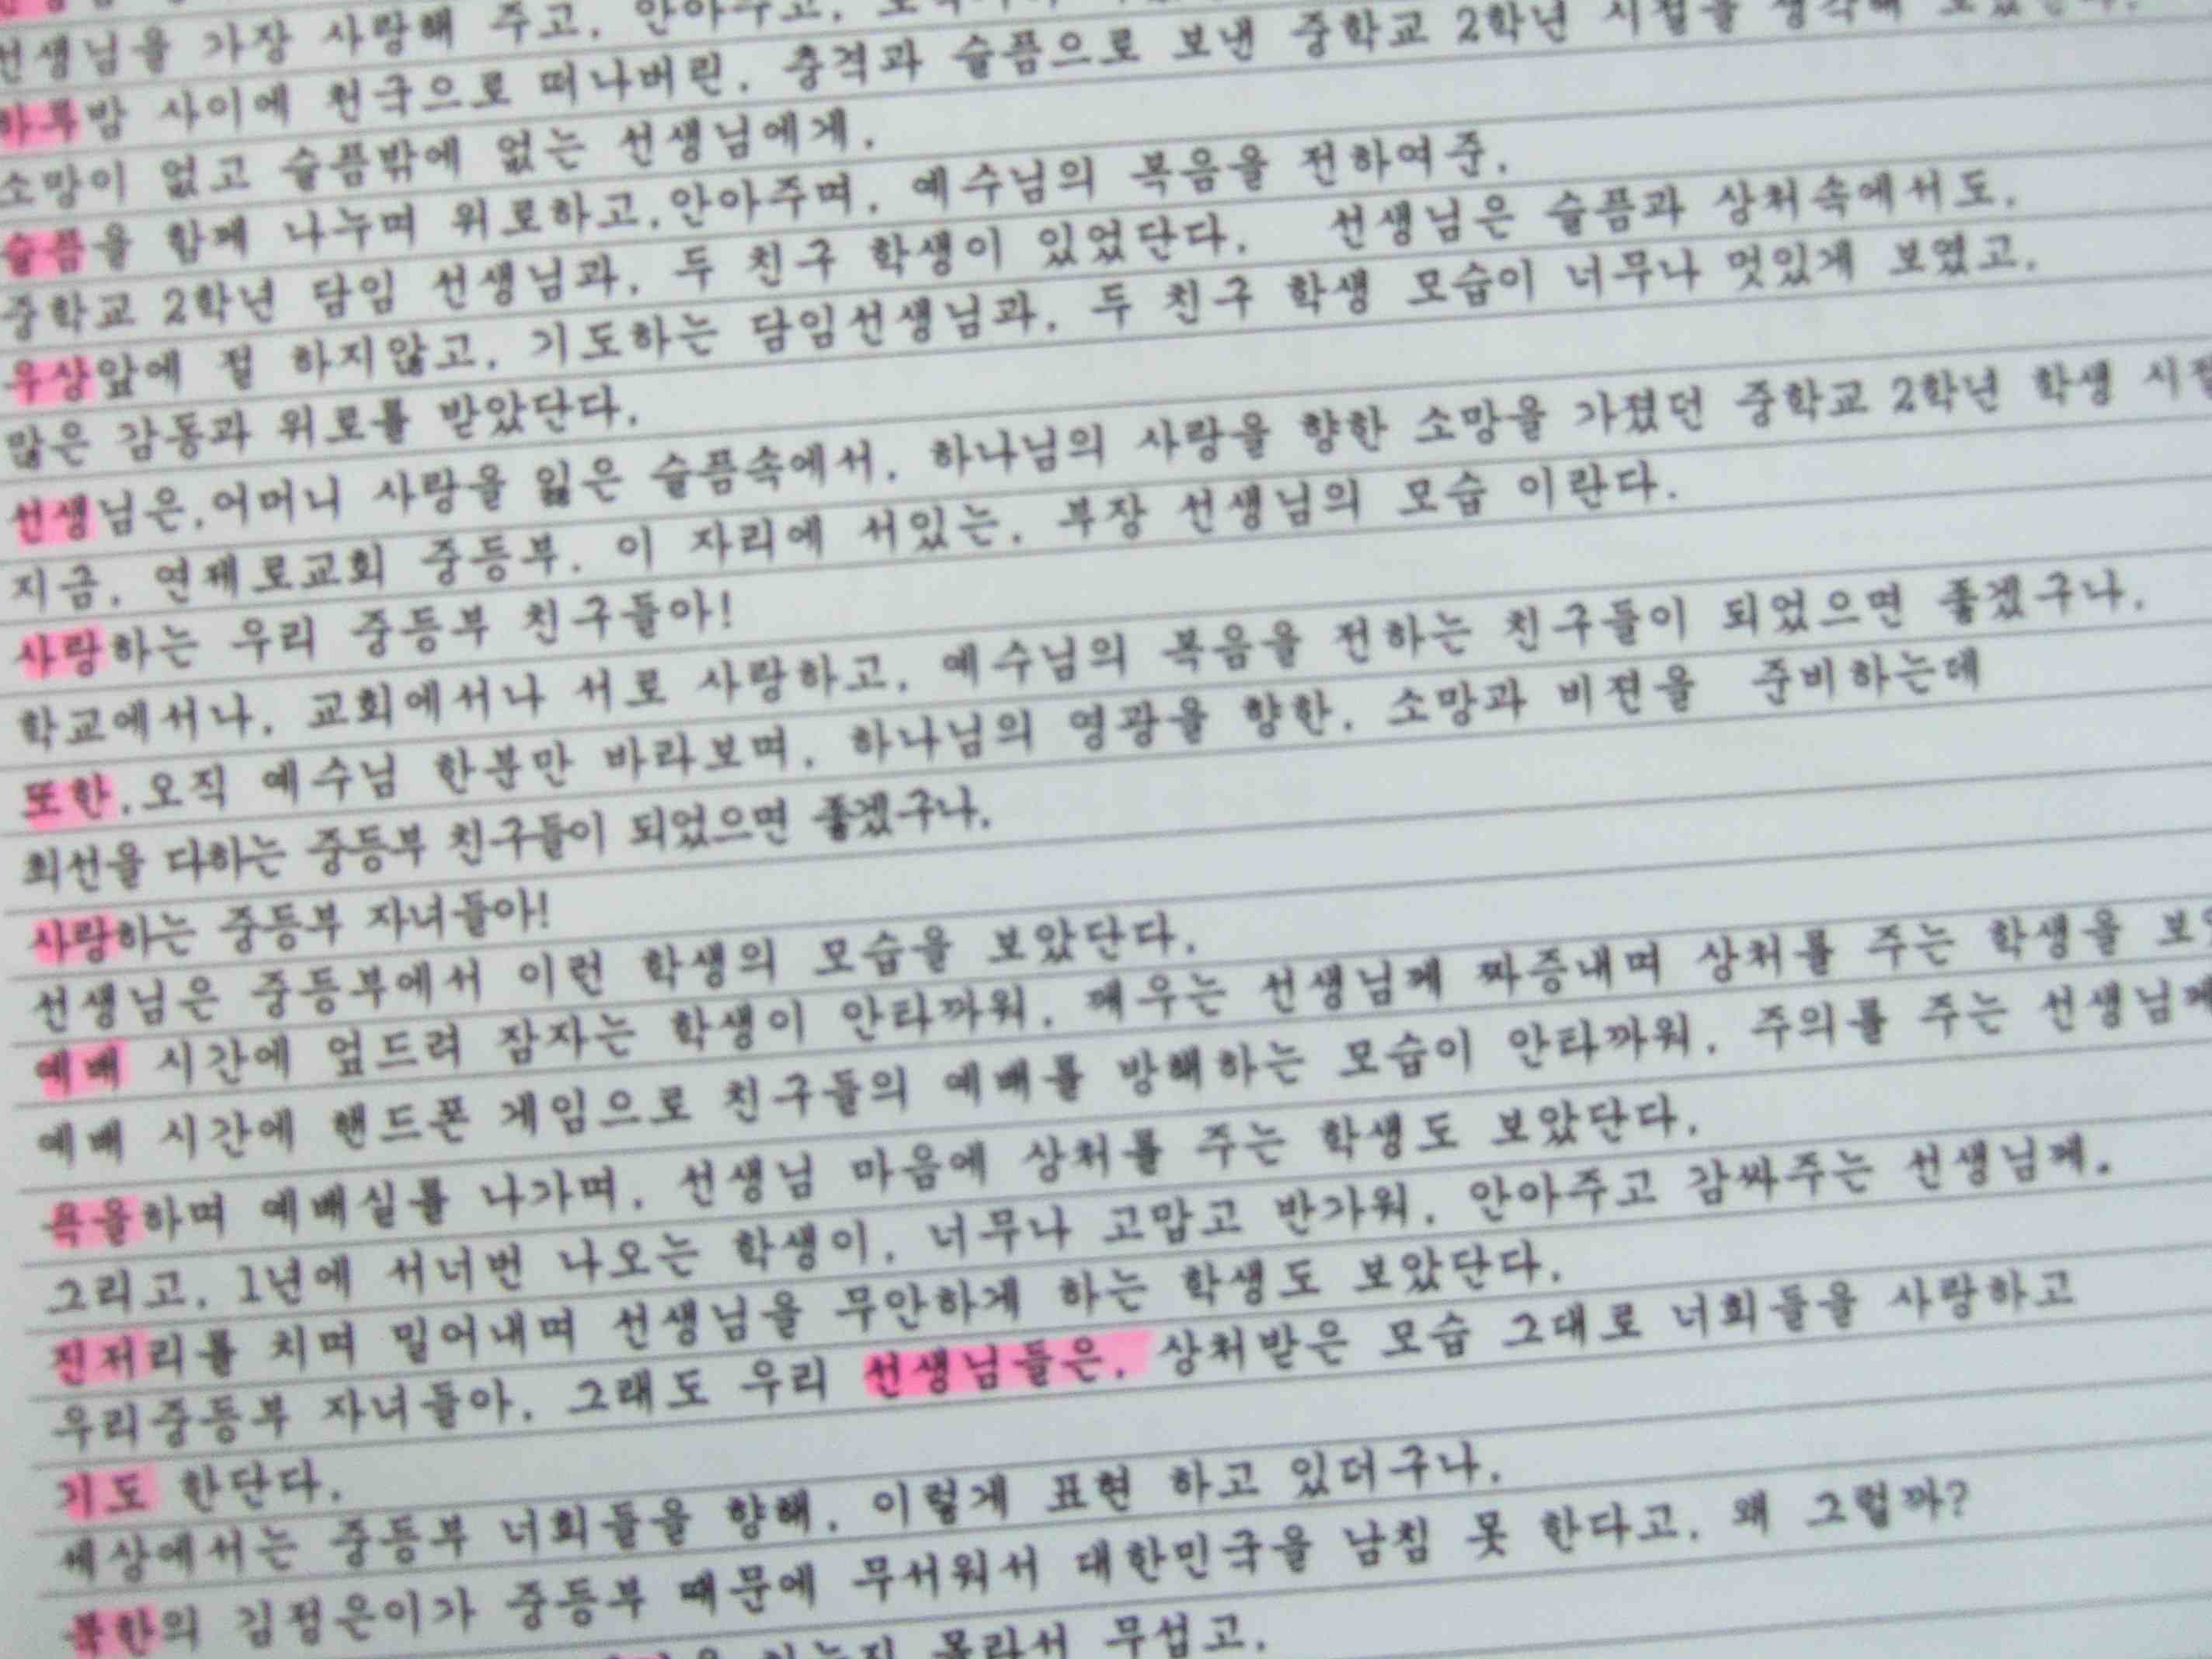 선생님을 가장 사랑해 주고, 안아주고,
하룻밤 사이에 천국으로 떠나버린, 충격과 슬픔으로 보낸 중학교 2학년 시절을 생각해
소망이 없고 슬픔밖에 없는 선생님에게,
슬픔을 함께 나누며 위로하고, 안아주며, 예수님의 복음을 전하여준,
중학교 2학년 담임 선생님과, 두 친구 학생이 있었단다, 선생님은 슬픔과 상처속에서도,
우상앞에 절 하지않고, 기도하는 담임선생님과, 두 친구 학생 모습이 너무나 멋있게 보였고,
많은 감동과 위로를 받았단다,
선생님은, 어머니 사랑을 잃은 슬픔속에서, 하나님의 사랑을 향한 소망을 가졌던 중학교 2학년 학생
지금, 연제로교회 중등부, 이 자리에 서있는, 부장 선생님의 모습 이란다.
사랑하는 우리 중등부 친구들아!
학교에서나, 교회에서나 서로 사랑하고, 예수님의 복음을 전하는 친구들이 되었으면 좋겠구나,
또한, 오직 예수님 한분만 바라보며, 하나님의 영광을 향한, 소망과 비젼을 준비하는데
최선을 다하는 중등부 친구들이 되었으면 좋겠구나,
사랑하는 중등부 자녀들아!
선생님은 중등부에서 이런 학생의 모습을 보았단다,
예배 시간에 엎드려 잠자는 학생이 안타까워, 깨우는 선생님께 짜증내며 상처를 주는 학생을
예배 시간에 핸드폰 게임으로 친구들의 예배를 방해하는 모습이 안타까워, 주의를 주는 선생님께
욕을하며 예배실를 나가며, 선생님 마음에 상처를 주는 학생도 보았단다,
그리고, 1년에 서너번 나오는 학생이, 너무나 고맙고 반가워, 안아주고 감싸주는 선생님께,
진저리를 치며 밀어내며 선생님을 무안하게 하는 학생도 보았단다,
우리중등부 자녀들아, 그래도 우리 선생님들은, 상처받은 모습 그대로 너희들을 사랑하고
기도 한단다,
세상에서는 중등부 너희들을 향해, 이렇게 표현 하고 있더구나,
북한의 김정은이가 중등부 때문에 무서워서 대한민국을 남침 못 한다고, 왜 그럴까?
몰라서 무섭고,